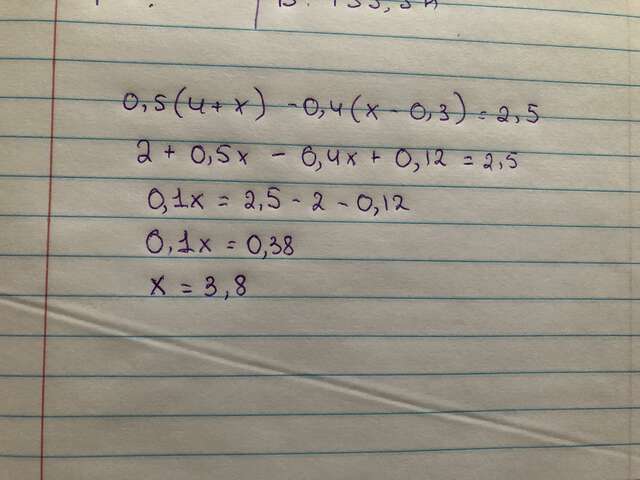 0,5(4+x) -0,4(x-0,3)=2,5
2+0,5x-0,4x+0,12=2,5
0,1x=2,5-2-0,12
0,1x=0,38
x=3,8